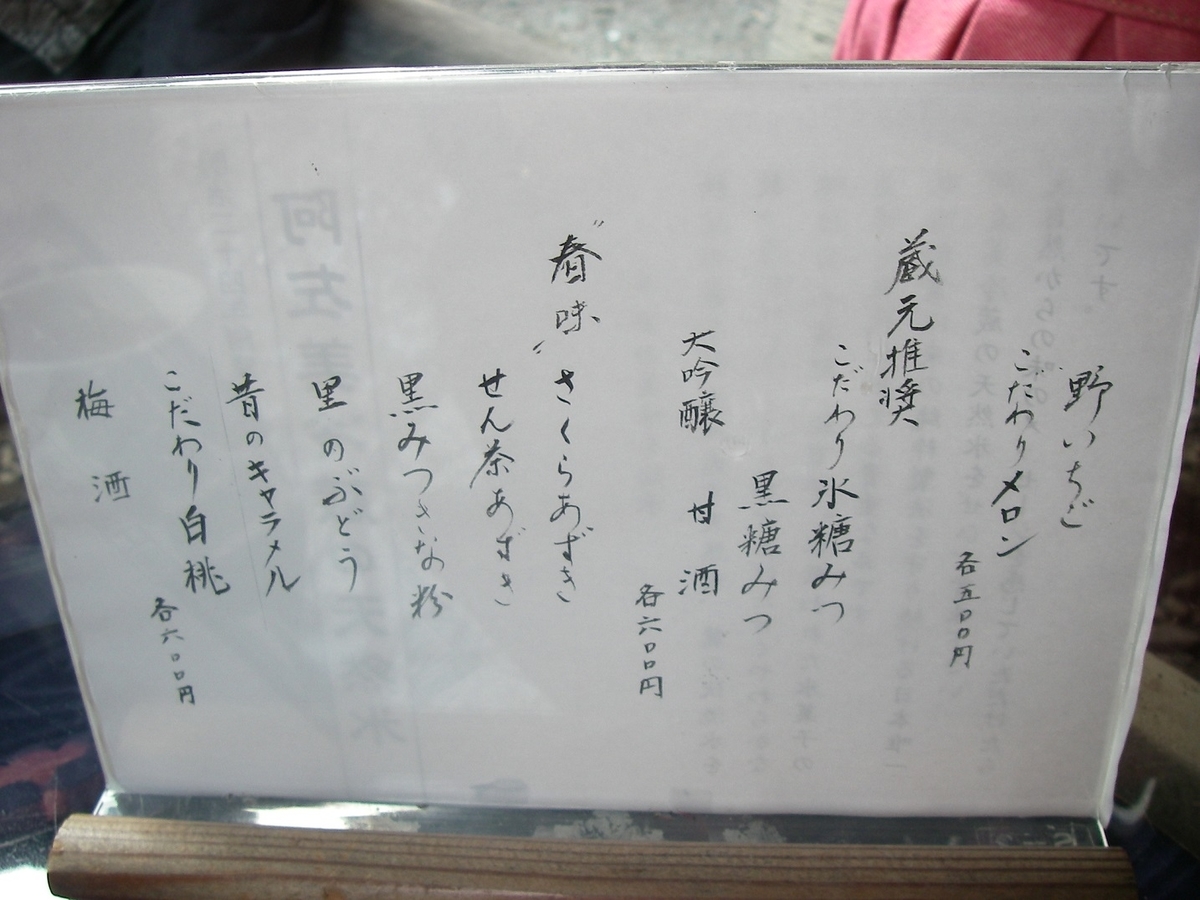 野いちご
こだわりメロン
各五〇〇円
蔵元推奨
こだわり氷糖みつ
黒糖みつ
大吟醸 甘酒
各六〇〇円
"春味"
さくらあずき
せん茶あずき
黒みつきな粉
里のぶどう
昔のキャラメル
こだわり白桃
各六〇〇円
梅酒